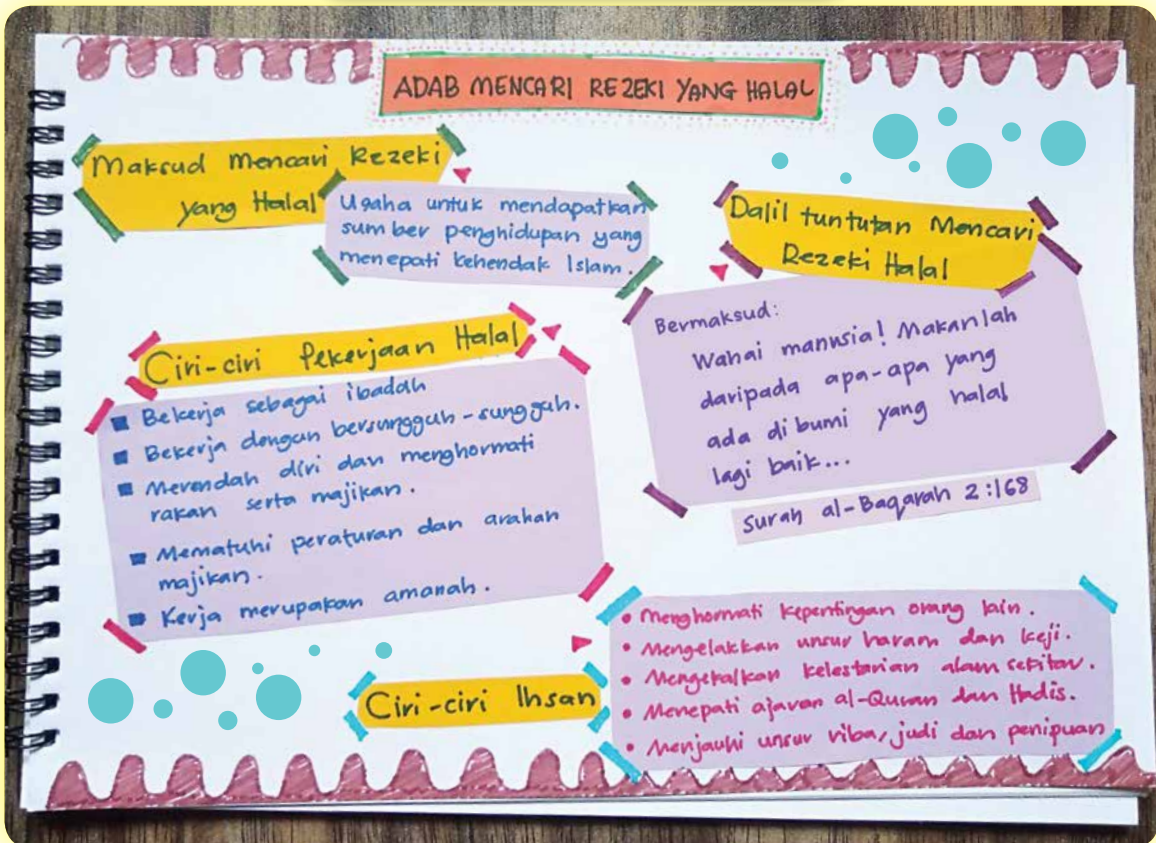 ADAB MENCARI REZEKI YANG HALAL
Maksud Mencari Rezeki
yang Halal
Usaha untuk mendapatkan
sumber penghidupan yang
menepati kehendak Islam.
Dalil tuntutan Mencari
Rezeki Halal
Bermaksud:
Wahai manusia! Makanlah
daripada apa-apa yang
ada di bumi yang halal
lagi baik...
Surah al-Baqarah 2:168
Ciri-ciri Pekerjaan Halal
Bekerja sebagai ibadah
Bekerja dengan bersungguh-sungguh.
Merendah diri dan menghormati
rakan serta majikan.
Mematuhi peraturan dan arahan
majikan.
Kerja merupakan amanah.
Ciri-ciri Ihsan
• Menghormati kepentingan orang lain.
• Mengelakkan unsur haram dan keji.
• Mengekalkan kelestarian alam sekitar.
• Menepati ajaran al-Quran dan Hadis.
• Menjauhi unsur riba, judi dan penipuan